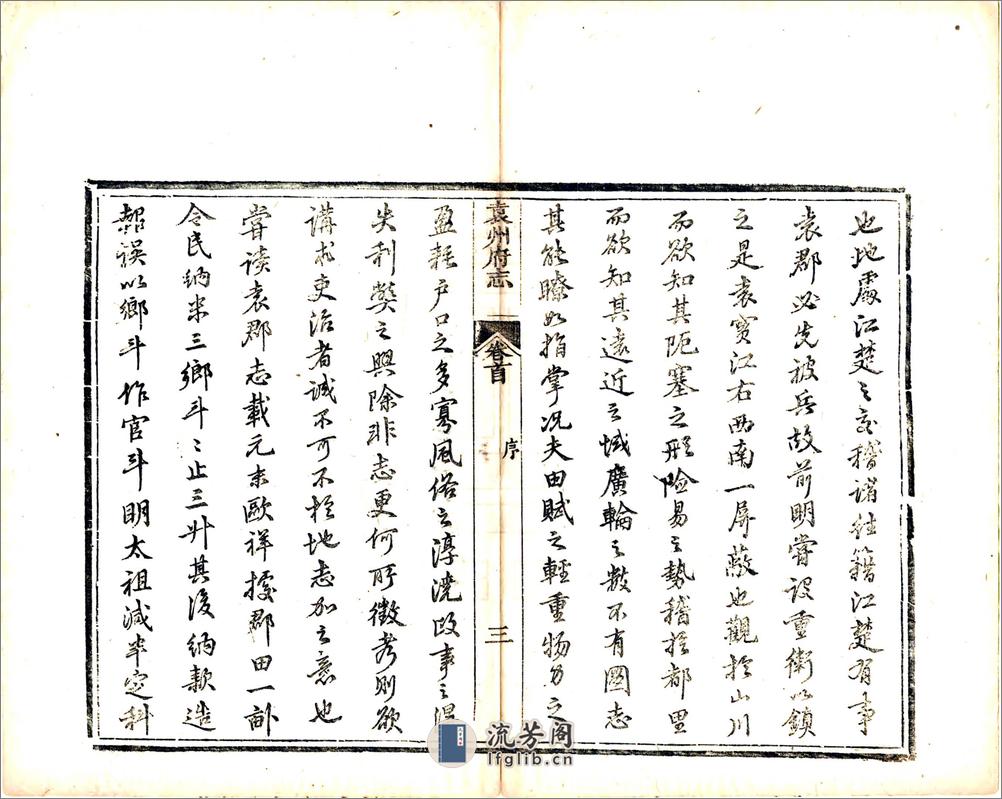 也地處江楚之交稽諸往籍江楚有事
袁郡必先被兵故前明嘗設重衛以鎮
之是袁實江右西南一屏蔽也觀於山川
而欲知其阨塞之形險易之勢稽於都里
而欲知其遠近之域廣輪之數不有國志
其能瞭如指掌況夫田賦之輕重物力之
袁州府志
卷首
序
三
盈耗戶口之多寡風俗之淳澆政事之得
失利獘之興除非志更何所徵考則欲
講求吏治者誠不可不於地志加之意也
嘗讀袁郡志載元末歐祥據郡田一畝
令民納米三鄉斗〻止三升其後納款造
報誤以鄉斗作官斗明太祖減半定科
流芳阁
lfglib.cn